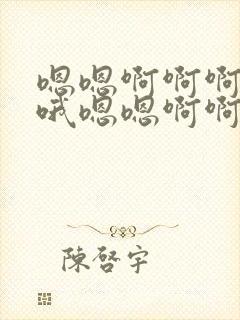 嗯嗯啊啊啊
哦嗯嗯啊啊
陳啓宇